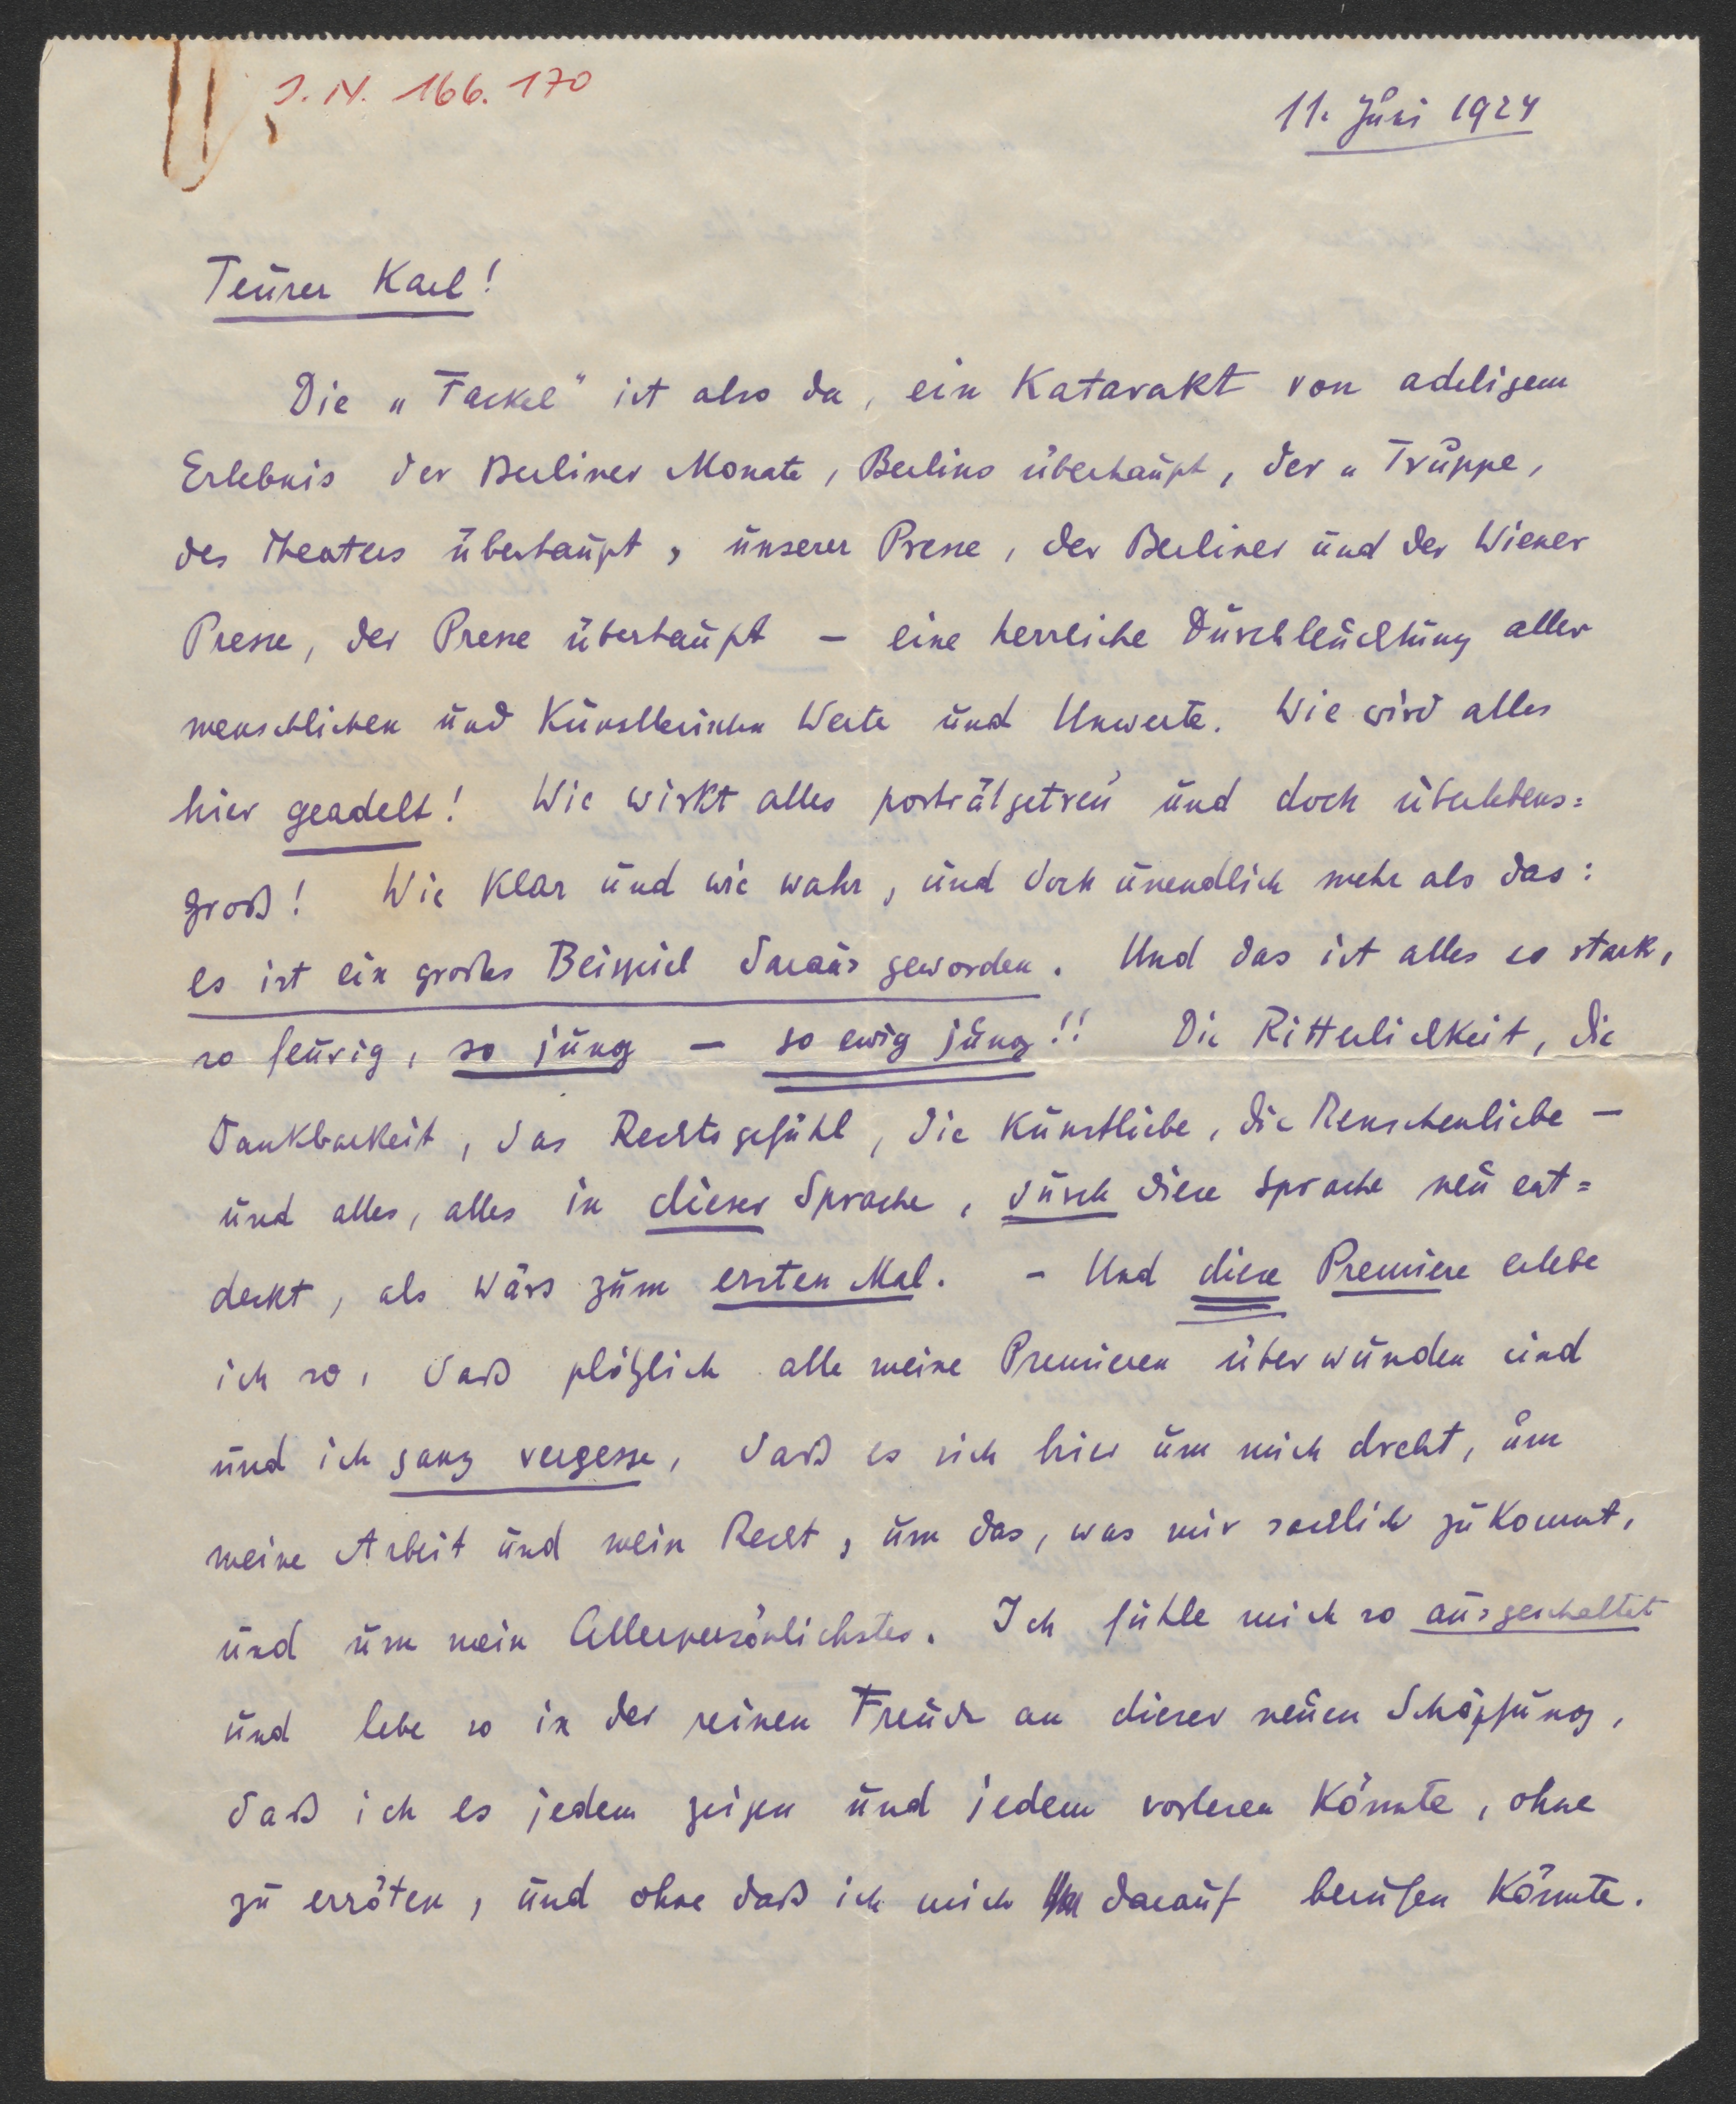 J. N. 166.170
11. Juni 1924
Teurer Karl!
Die „Fackel" ist also da, ein Katarakt von adeligem
Erlebnis der Berliner Monate, Berlins überhaupt, der „Truppe,
des Theaters überhaupt, unserer Presse, der Berliner und der Wiener
Presse, der Presse überhaupt – eine herrliche Durchleuchtung aller
menschlichen und künstlerischen Werte und Unwerte. Wie wird alles
hier geadelt! Wie wirkt alles porträtgetreu und doch überlebens=
groß! Wie klar und wie wahr, und doch unendlich mehr als das:
es ist ein großes Beispiel daraus geworden. Und das ist alles so stark,
so feurig, so jung – so ewig jung!! Die Ritterlichkeit, die
Dankbarkeit, das Rechtsgefühl, die Kunstliebe, die Menschenliebe –
und alles, alles in dieser Sprache, durch diese Sprache neu ent=
deckt, als wärs zum ersten Mal. – Und diese Premiere erlebe
ich so, daß plötzlich alle meine Premieren überwunden sind
und ich ganz vergesse, daß es sich hier um mich dreht, um
meine Arbeit und mein Recht, um das, was mir sachlich zukommt,
und um mein Allerpersönlichstes. Ich fühle mich so ausgeschaltet
und lebe so in der reinen Freude an dieser neuen Schöpfung,
daß ich es jedem zeigen und jedem vorlesen könnte, ohne
zu erröten, und ohne daß ich mich darauf berufen könnte.